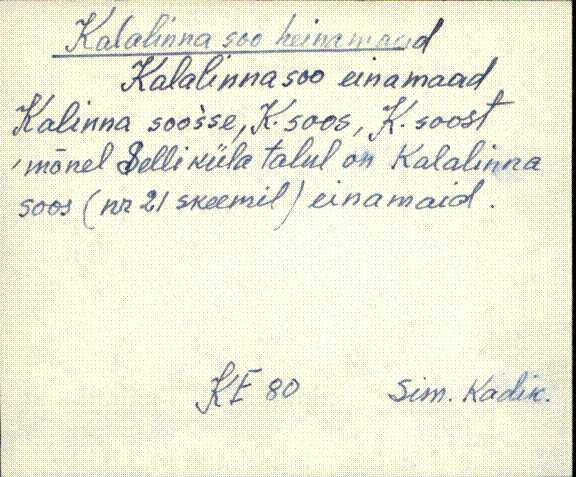 Kalalinna soo heinamaad
Kalalinna soo einamaad
Kalinna soosse, K. soos, K. soost
'mõnel Selliküla talul on Kalalinna
soos (nr 21 skeemil) einamaid.
KE 80 Sim. Kadik.